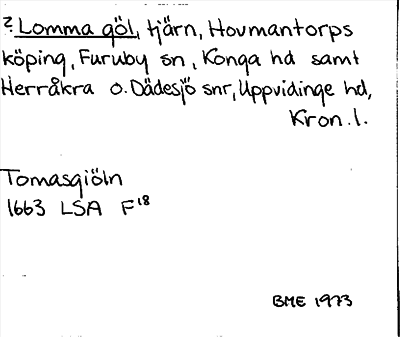 ? Lomma göl, tjärn, Hovmantorps
köping, Furuby sn, Konga hd samt
Herråkra o. Dädesjö snr, Uppvidinge hd,
Kron. l.
Tomasgiöln
1663 LSA F18
BME 1973